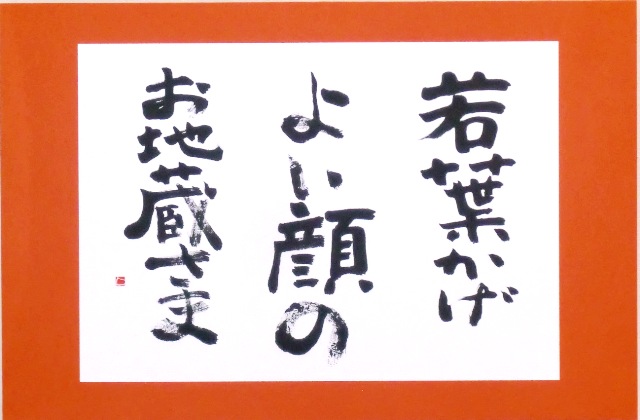 若葉かげ
よい顔の
お地蔵さま